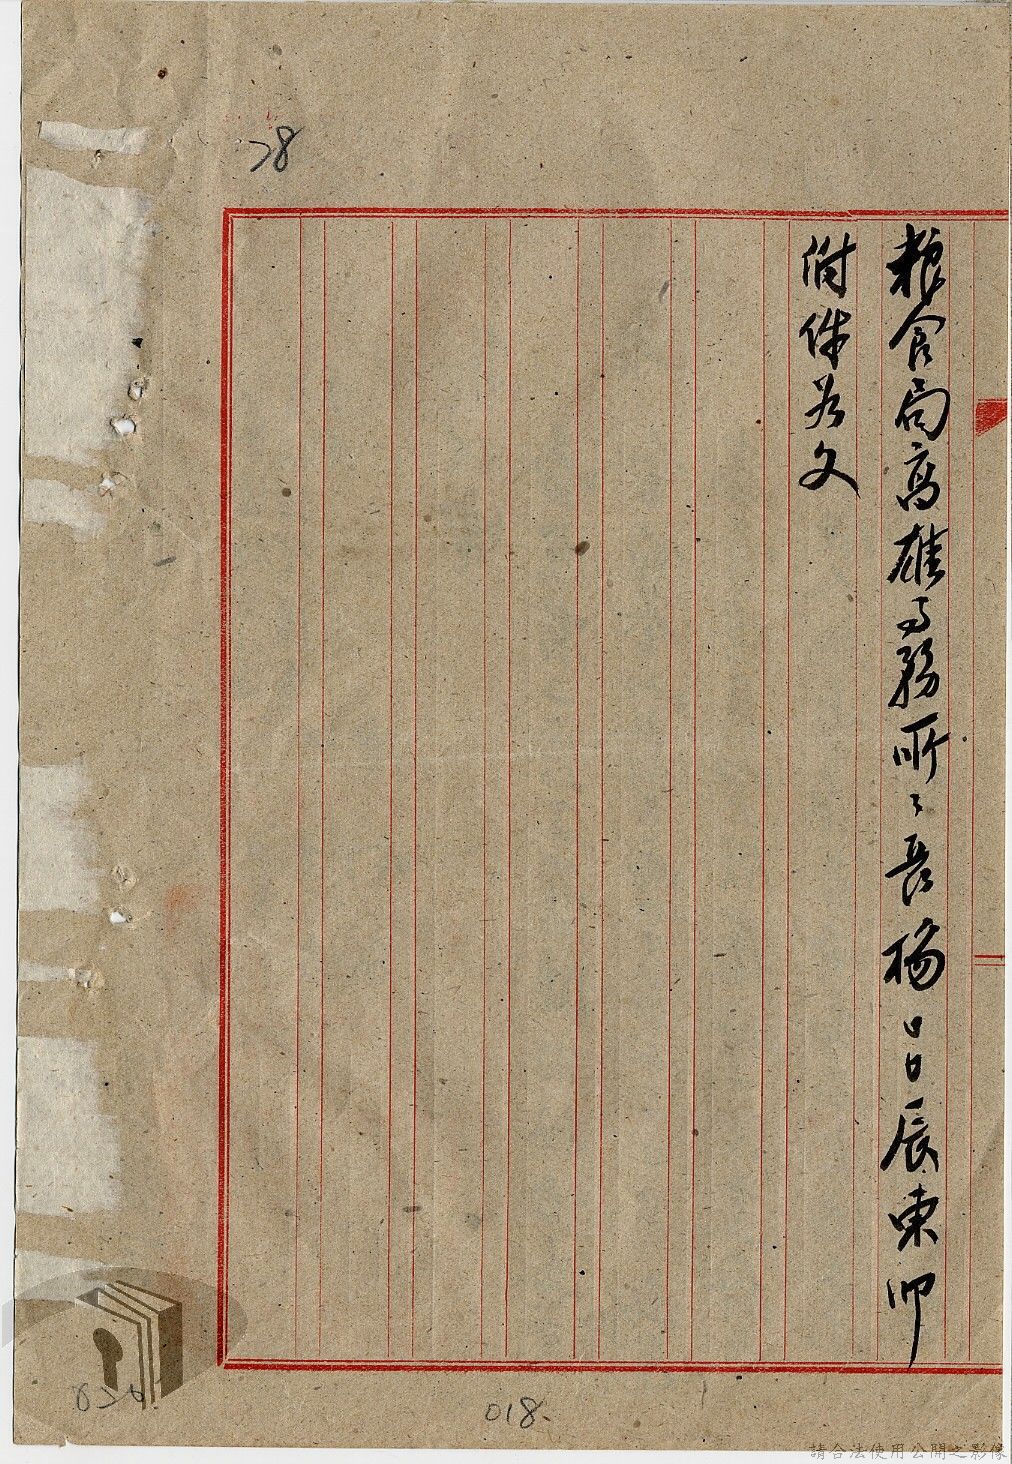 糧食局高雄事務所〻長楊昌辰東叩
附件如文
28
018
請合法使用公開之影像